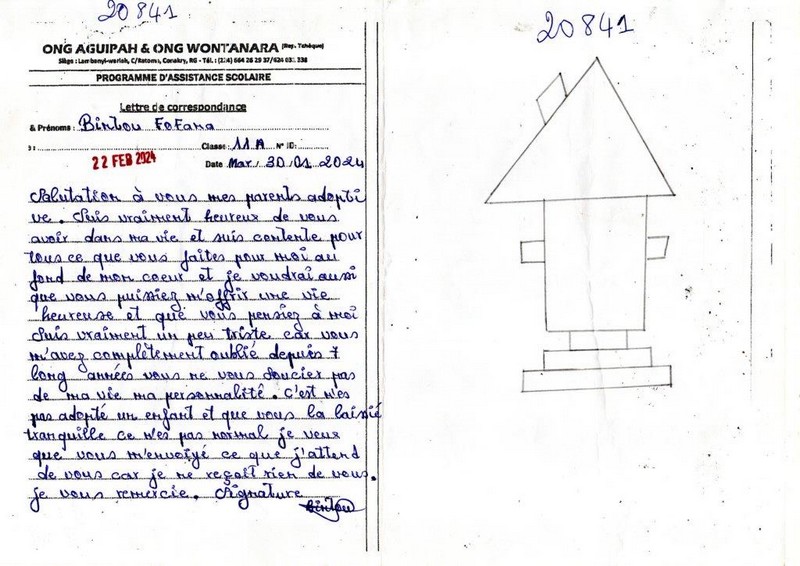 20841
ONG AGUIPAH & ONG WONTANARA (Rep. Tchèque)
Siège : Lambanyi-warlah, C/Ratoma, Conakry, RG - Tél. :
PROGRAMME D'ASSISTANCE SCOLAIRE
Lettre de correspondance
& Prénoms : Bintou Fofana
Classe : 11 A N° ID:
22 FEB 2024
Date Mar. 30 01 2024
Salutation à vous mes parents adopti
ve. Suis vraiment heureux de vous
avoir dans ma vie et suis contente pour
tous ce que vous faites pour moi au
fond de mon coeur et je voudrai aussi
que vous puissiez m'offrir une vie
heureuse et que vous pensiez à moi
Suis vraiment un peu triste car vous
m'avez complètement oublié depuis 7
long années vous ne vous soucier pas
de ma vie ma personnalité. C'est n'es
pas adopté un enfant et que vous la laissé
tranquille ce n'es pas normal je veux
que vous m'envoyé ce que j'attend
de vous car je ne reçoit rien de vous.
je vous remercie. Signature
Bintou
20841